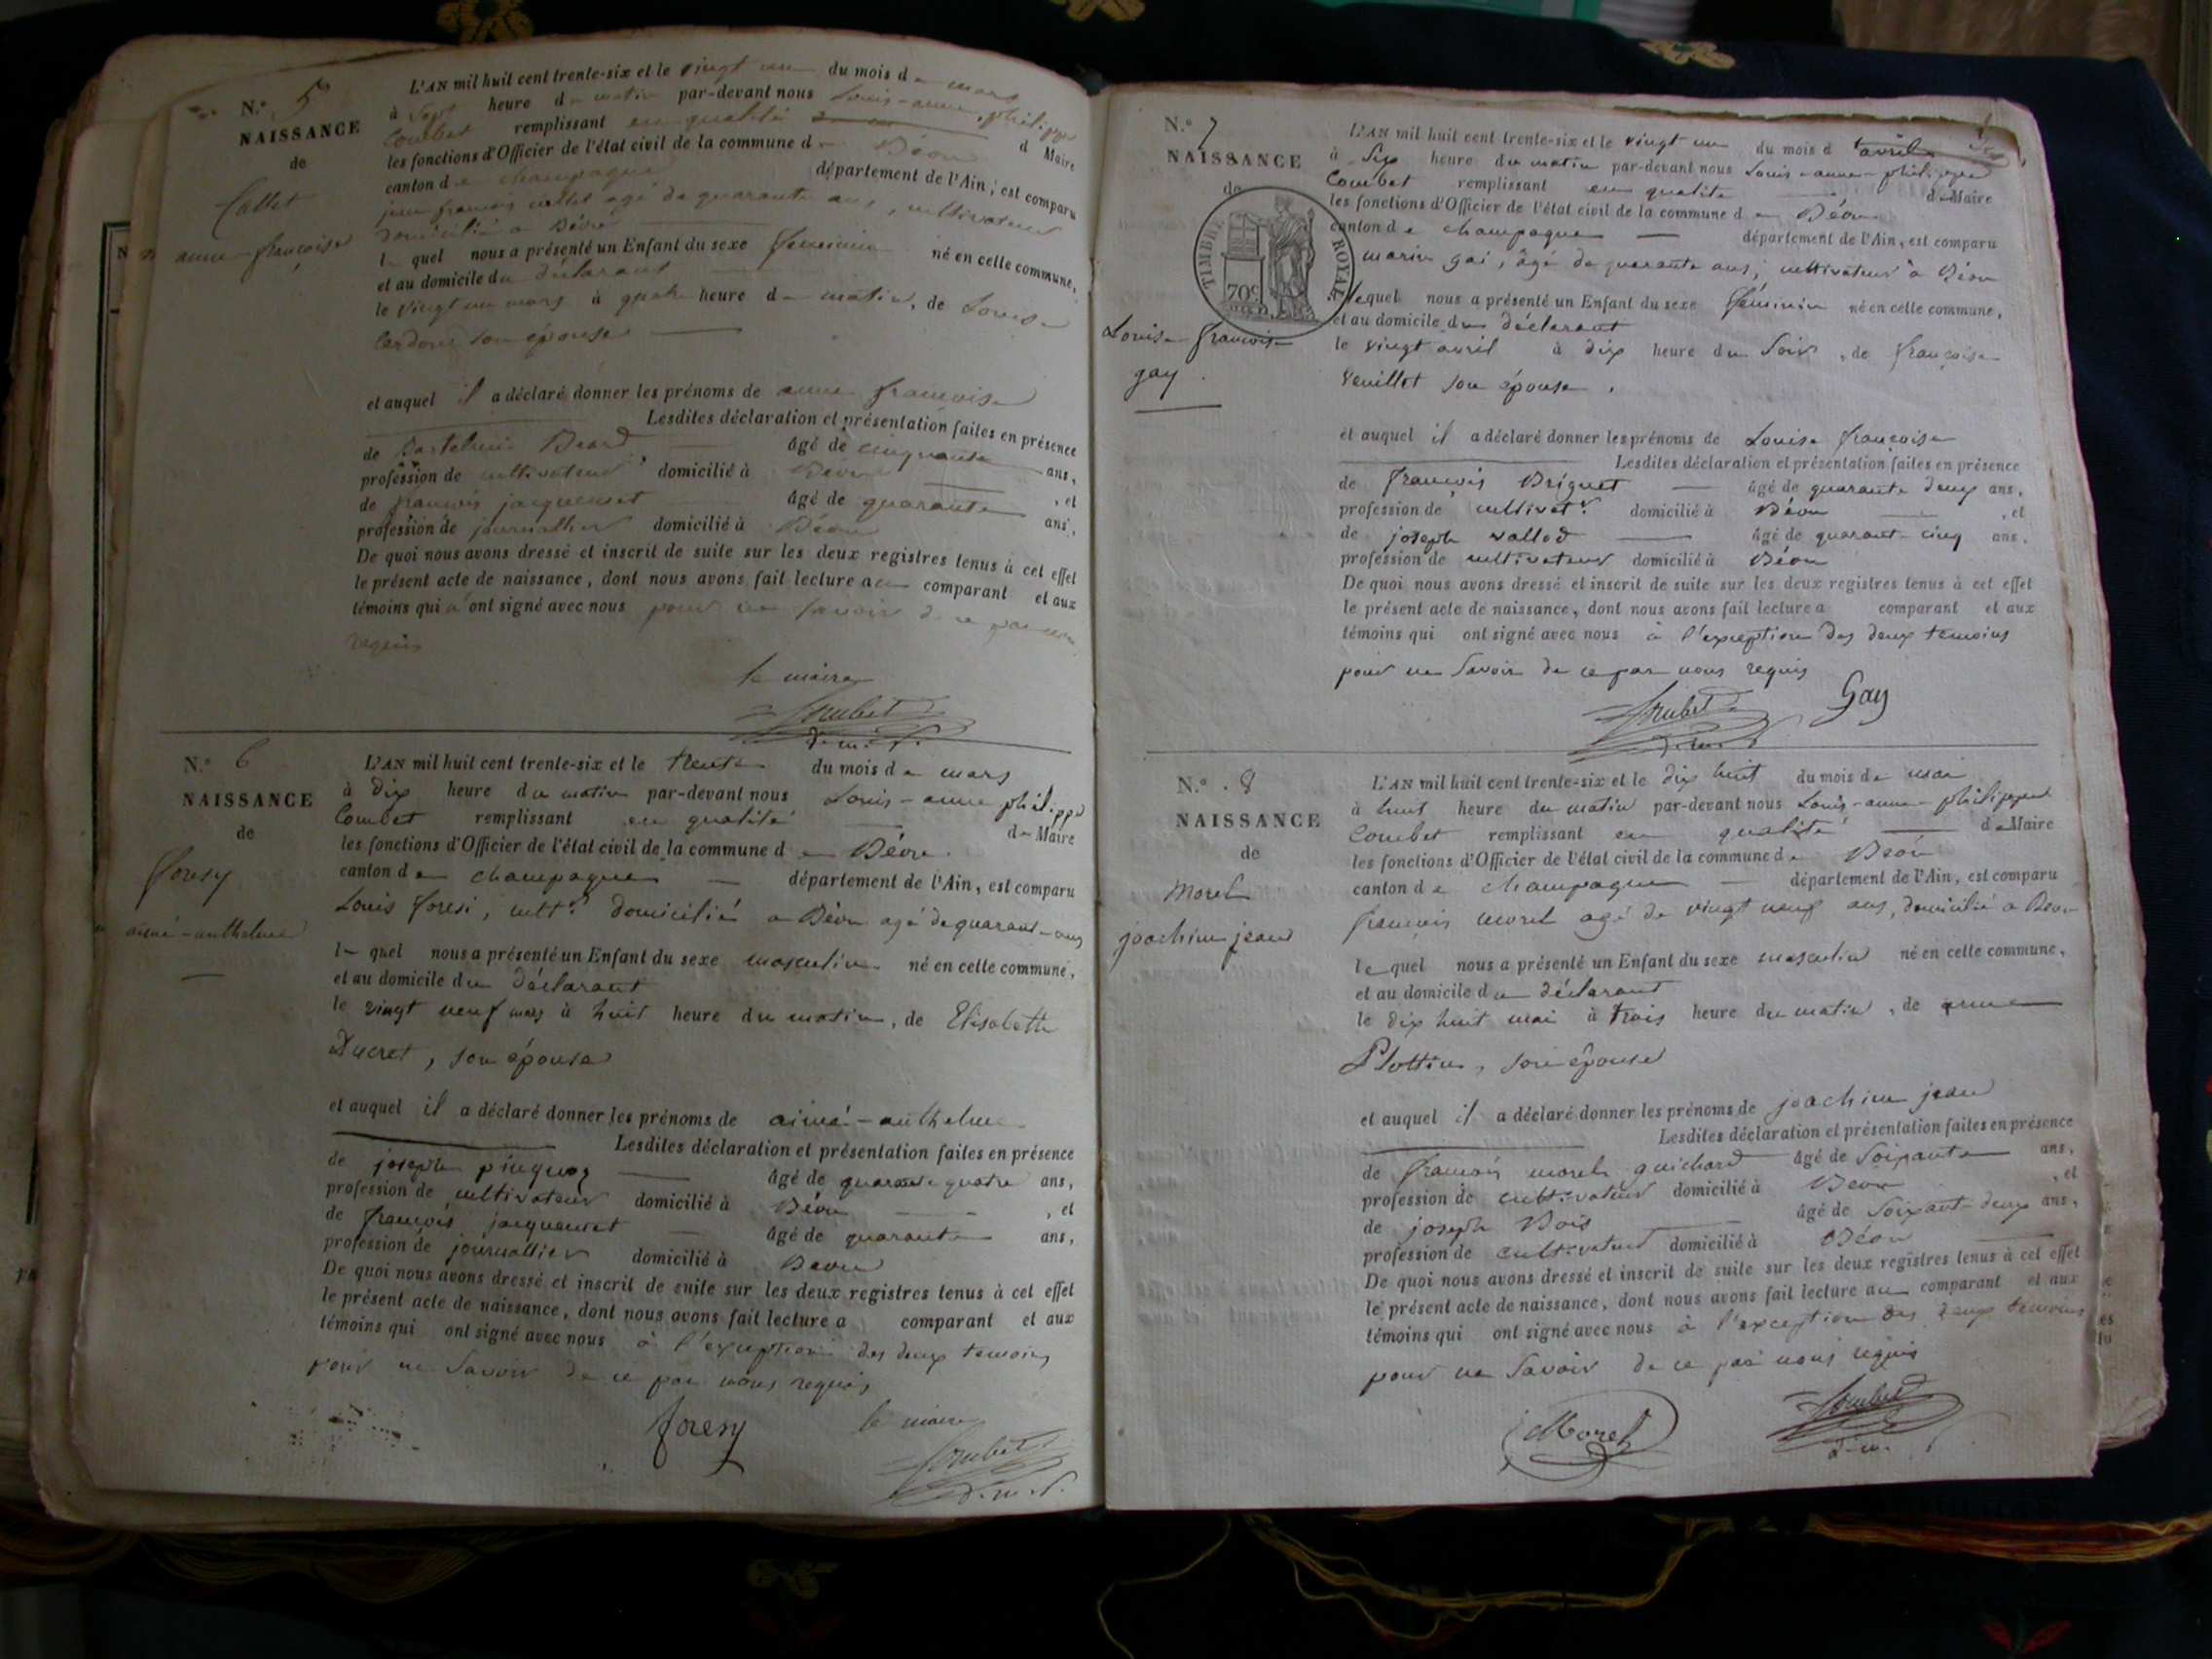 N.° 5
NAISSANCE
de
Collet
anne françoise
L'AN mil huit cent trente-six et le vingt un du mois de mars
à sept heure du matin par-devant nous Louis-anne philippe
Combet remplissant en qualité d Maire
les fonctions d'Officier de l'état civil de la commune de Béon
canton de champagne département de l'Ain, est comparu
jean françois collet agé de quarante ans, cultivateur
domicilié a Béon
lequel nous a présenté un Enfant du sexe féminin né en celle commune,
et au domicile du déclarant
le vingt un mars à quatre heure du matin, de Louise
son épouse
et auquel il a déclaré donner les prénoms de anne françoise
Lesdites déclaration et présentation faites en présence
de Bartelmi Béard âgé de cinquante ans,
profession de cultivateur domicilié à Béon , et
de françois jacquemet âgé de quarante ans,
profession de journallier domicilié à Béon
De quoi nous avons dressé et inscrit de suite sur les deux registres tenus à cet effet
le présent acte de naissance, dont nous avons fait lecture au comparant et aux
témoins qui n'ont signé avec nous pour ne savoir de ce par nous
requis
le maire
Combet
N.° 6
NAISSANCE
de
foresy
aimé-anthelme
L'AN mil huit cent trente-six et le trente du mois de mars
à dix heure du matin par-devant nous Louis-anne philippe
Combet remplissant en qualité de Maire
les fonctions d'Officier de l'état civil de la commune de Béon
canton de champagne département de l'Ain, est comparu
Louis foresi, cultr domicilié a Béon agé de quarante ans
lequel nous a présenté un Enfant du sexe masculin né en celle commune,
et au domicile du déclarant
le vingt neuf mars à huit heure du matin, de Elisabeth
Ducret, son épouse
et auquel il a déclaré donner les prénoms de aimé-anthelme
Lesdites déclaration et présentation faites en présence
de joseph pinquoz âgé de quarante quatre ans,
profession de cultivateur domicilié à Béon , et
de françois jacquemet âgé de quarante ans,
profession de journallier domicilié à Béon
De quoi nous avons dressé et inscrit de suite sur les deux registres tenus à cet effet
le présent acte de naissance, dont nous avons fait lecture a comparant et aux
témoins qui ont signé avec nous à l'exception des deux temoins
pour ne savoir de ce par nous requis
foresy
le maire
Combet
N.° 7
NAISSANCE
de
TIMBRE ROYAL
70c
Louise françoise
gay
L'AN mil huit cent trente-six et le vingt un du mois d'avril
à six heure du matin par-devant nous Louis-anne-philippe
Combet remplissant en qualité de Maire
les fonctions d'Officier de l'état civil de la commune de Béon
canton de champagne département de l'Ain, est comparu
marin gai, âgé de quarante ans, cultivateur à Béon
lequel nous a présenté un Enfant du sexe féminin né en celle commune,
et au domicile du déclarant
le vingt avril à dix heure du soir, de françoise
Veuillet son épouse.
et auquel il a déclaré donner les prénoms de Louise françoise
Lesdites déclaration et présentation faites en présence
de françois Briguet âgé de quarante deux ans,
profession de cultivatr domicilié à Béon , et
de joseph vallod âgé de quarant-cinq ans,
profession de cultivateur domicilié à Béon
De quoi nous avons dressé et inscrit de suite sur les deux registres tenus à cet effet
le présent acte de naissance, dont nous avons fait lecture a comparant et aux
témoins qui ont signé avec nous à l'exception des deux temoins
pour ne savoir de ce par nous requis
Combet
Gay
N.° 8
NAISSANCE
de
Morel
joachim jean
L'AN mil huit cent trente-six et le dix huit du mois de mai
à huit heure du matin par-devant nous Louis-anne-philippe
Combet remplissant en qualité de Maire
les fonctions d'Officier de l'état civil de la commune de Béon
canton de champagne département de l'Ain, est comparu
françois morel agé de vingt neuf ans, domicilié a Béon
lequel nous a présenté un Enfant du sexe masculin né en celle commune,
et au domicile du déclarant
le dix huit mai à trois heure du matin, de
Plottin, son épouse
et auquel il a déclaré donner les prénoms de joachim jean
Lesdites déclaration et présentation faites en présence
de françois morel guichard âgé de soixante ans,
profession de cultivateur domicilié à Béon , et
de joseph Bois âgé de soixant-deux ans,
profession de cultivateur domicilié à Béon
De quoi nous avons dressé et inscrit de suite sur les deux registres tenus à cet effet
le présent acte de naissance, dont nous avons fait lecture au comparant et aux
témoins qui ont signé avec nous à l'exception des deux temoins
pour ne savoir de ce par nous requis
Morel
Combet